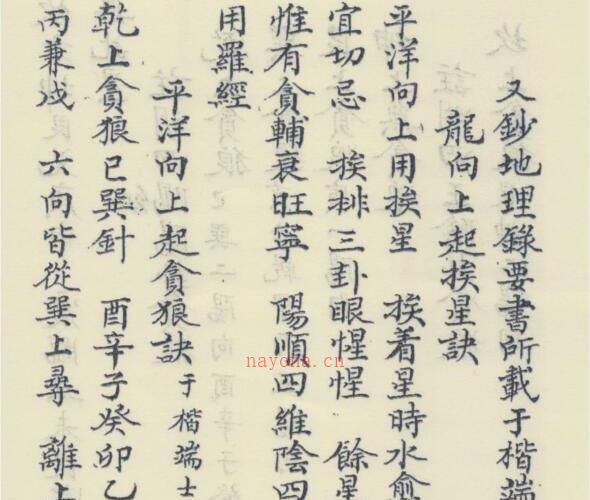 又鈔地理錄要書所載于楷端
龍向上起挨星訣
平洋向上用挨星　挨着星時水愈
宜切忌　挨排三卦眼惺惺　餘星
惟有貪輔衰旺寧　陽順四維陰四
用羅經
平洋向上起貪狼訣于楷端士
乾上貪狼巳巽針　酉辛子癸卯乙
丙兼戌　六向皆從巽上尋　離上
nayona.cn